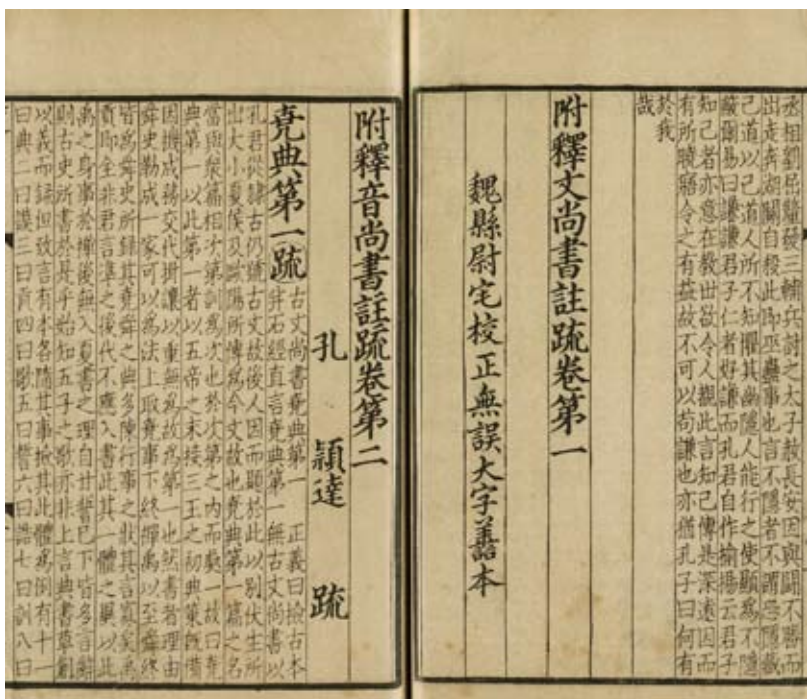 丞相劉屈氂發三輔兵討之太子赦長安囚與鬬不勝而
出走奔湖關自殺此即巫蠱事也言不隱者不謂恐隱藏
己道以己道人所不知懼其幽隱人能行之使顯爲不隱
蔽爾易曰謙謙君子仁者好謙而孔君自作揄揚云君子
知己者亦意在教世欲令人觀此言知己傳是深遠因而
有所曉寤令之有益故不可以苟謙也亦猶孔子曰何有
於我
哉
附釋文尚書註疏卷第一
魏縣尉宅校正無誤大字善本
附釋音尚書註疏卷第二
孔 穎達 疏
堯典第一疏 古文尚書堯典第一 正義曰檢古本
并石經直言堯典第一無古文尚書以
孔君從隸古仍號古文故後人因而題於此以別伏生所
出大小夏侯及歐陽所傳爲今文故也堯典第一篇之名
當與衆篇相次第訓爲次也於次第之內而處一故曰堯
典第一以此第一者以五帝之末接三王之初典策既備
因機成務交代揖讓以垂無爲故爲第一也然書者理由
舜史勒成一家可以爲法上取堯事下終禪禹以至舜終
皆爲舜史所録其堯舜之典多陳行事之狀其言寡矣禹
貢即全非君言準之後代不應入書此其一體之異以此
禹之身事於禪後無入夏書之理自甘誓已下皆多言辭
則古史所書於是乎始知五子之歌亦非上言典書草創
以義而録但致言有本各隨其事檢其此體爲例有十一
曰典二曰謨三曰貢四曰歌五曰誓六曰誥七曰訓八曰